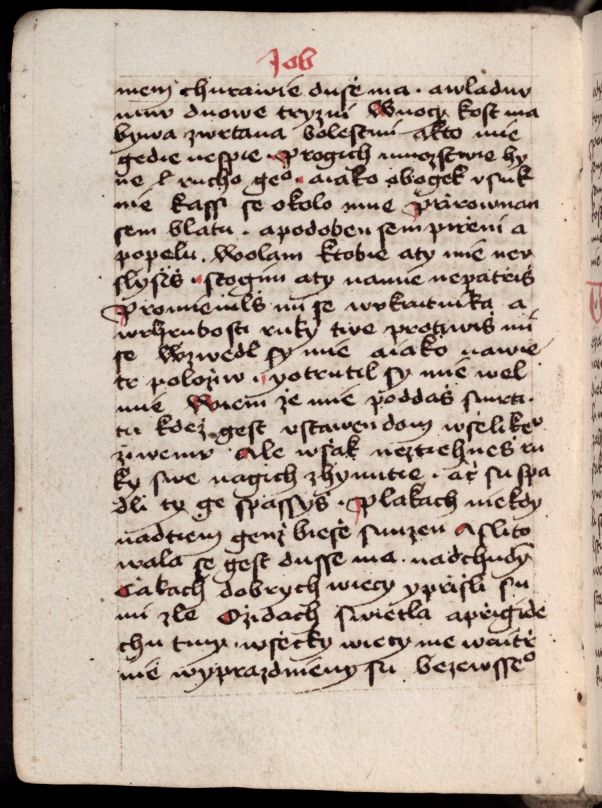 Job
mem churawie dusė ma · awladnu
mnu dnowe tryzni Wnocy kost ma
bywa zwrtana bolestmi akto mie
gedie nespie · Progich mnozstwie hy
ne l rucho geo · aiako obogek vsuk
nie kassi se okolo mne Prirownan
sem blatu · apodoben sem pireni a
popelu · Woolam ktobie aty mie ner
slyssis · stogim aty namie nepatris
Promienils mi se wukrutnika a
wtwrdosti ruky twe protiwis mi
se Wzwedl sy mie aiako nawie
tr poloziw · potrutil sy mie wel
mie Wiem ze mie poddas smrti ·
tu kdez gest vstawen dom wselike
ziwemu Ale wsak neztiehnes ru
ky swe nagich zhynutie · ac su spa
dli ty ge spassys · Plakach niekdy
nadtiem genz biese smuzen Aslito
wala se gest dusse ma · nadchudym
Cakach dobrych wiecy yprisli su
mi zle Ozidach swietla aprigide
chu tmy · wsecky wiecy me wnitr
nie wyprazdnieny su bezewsseo